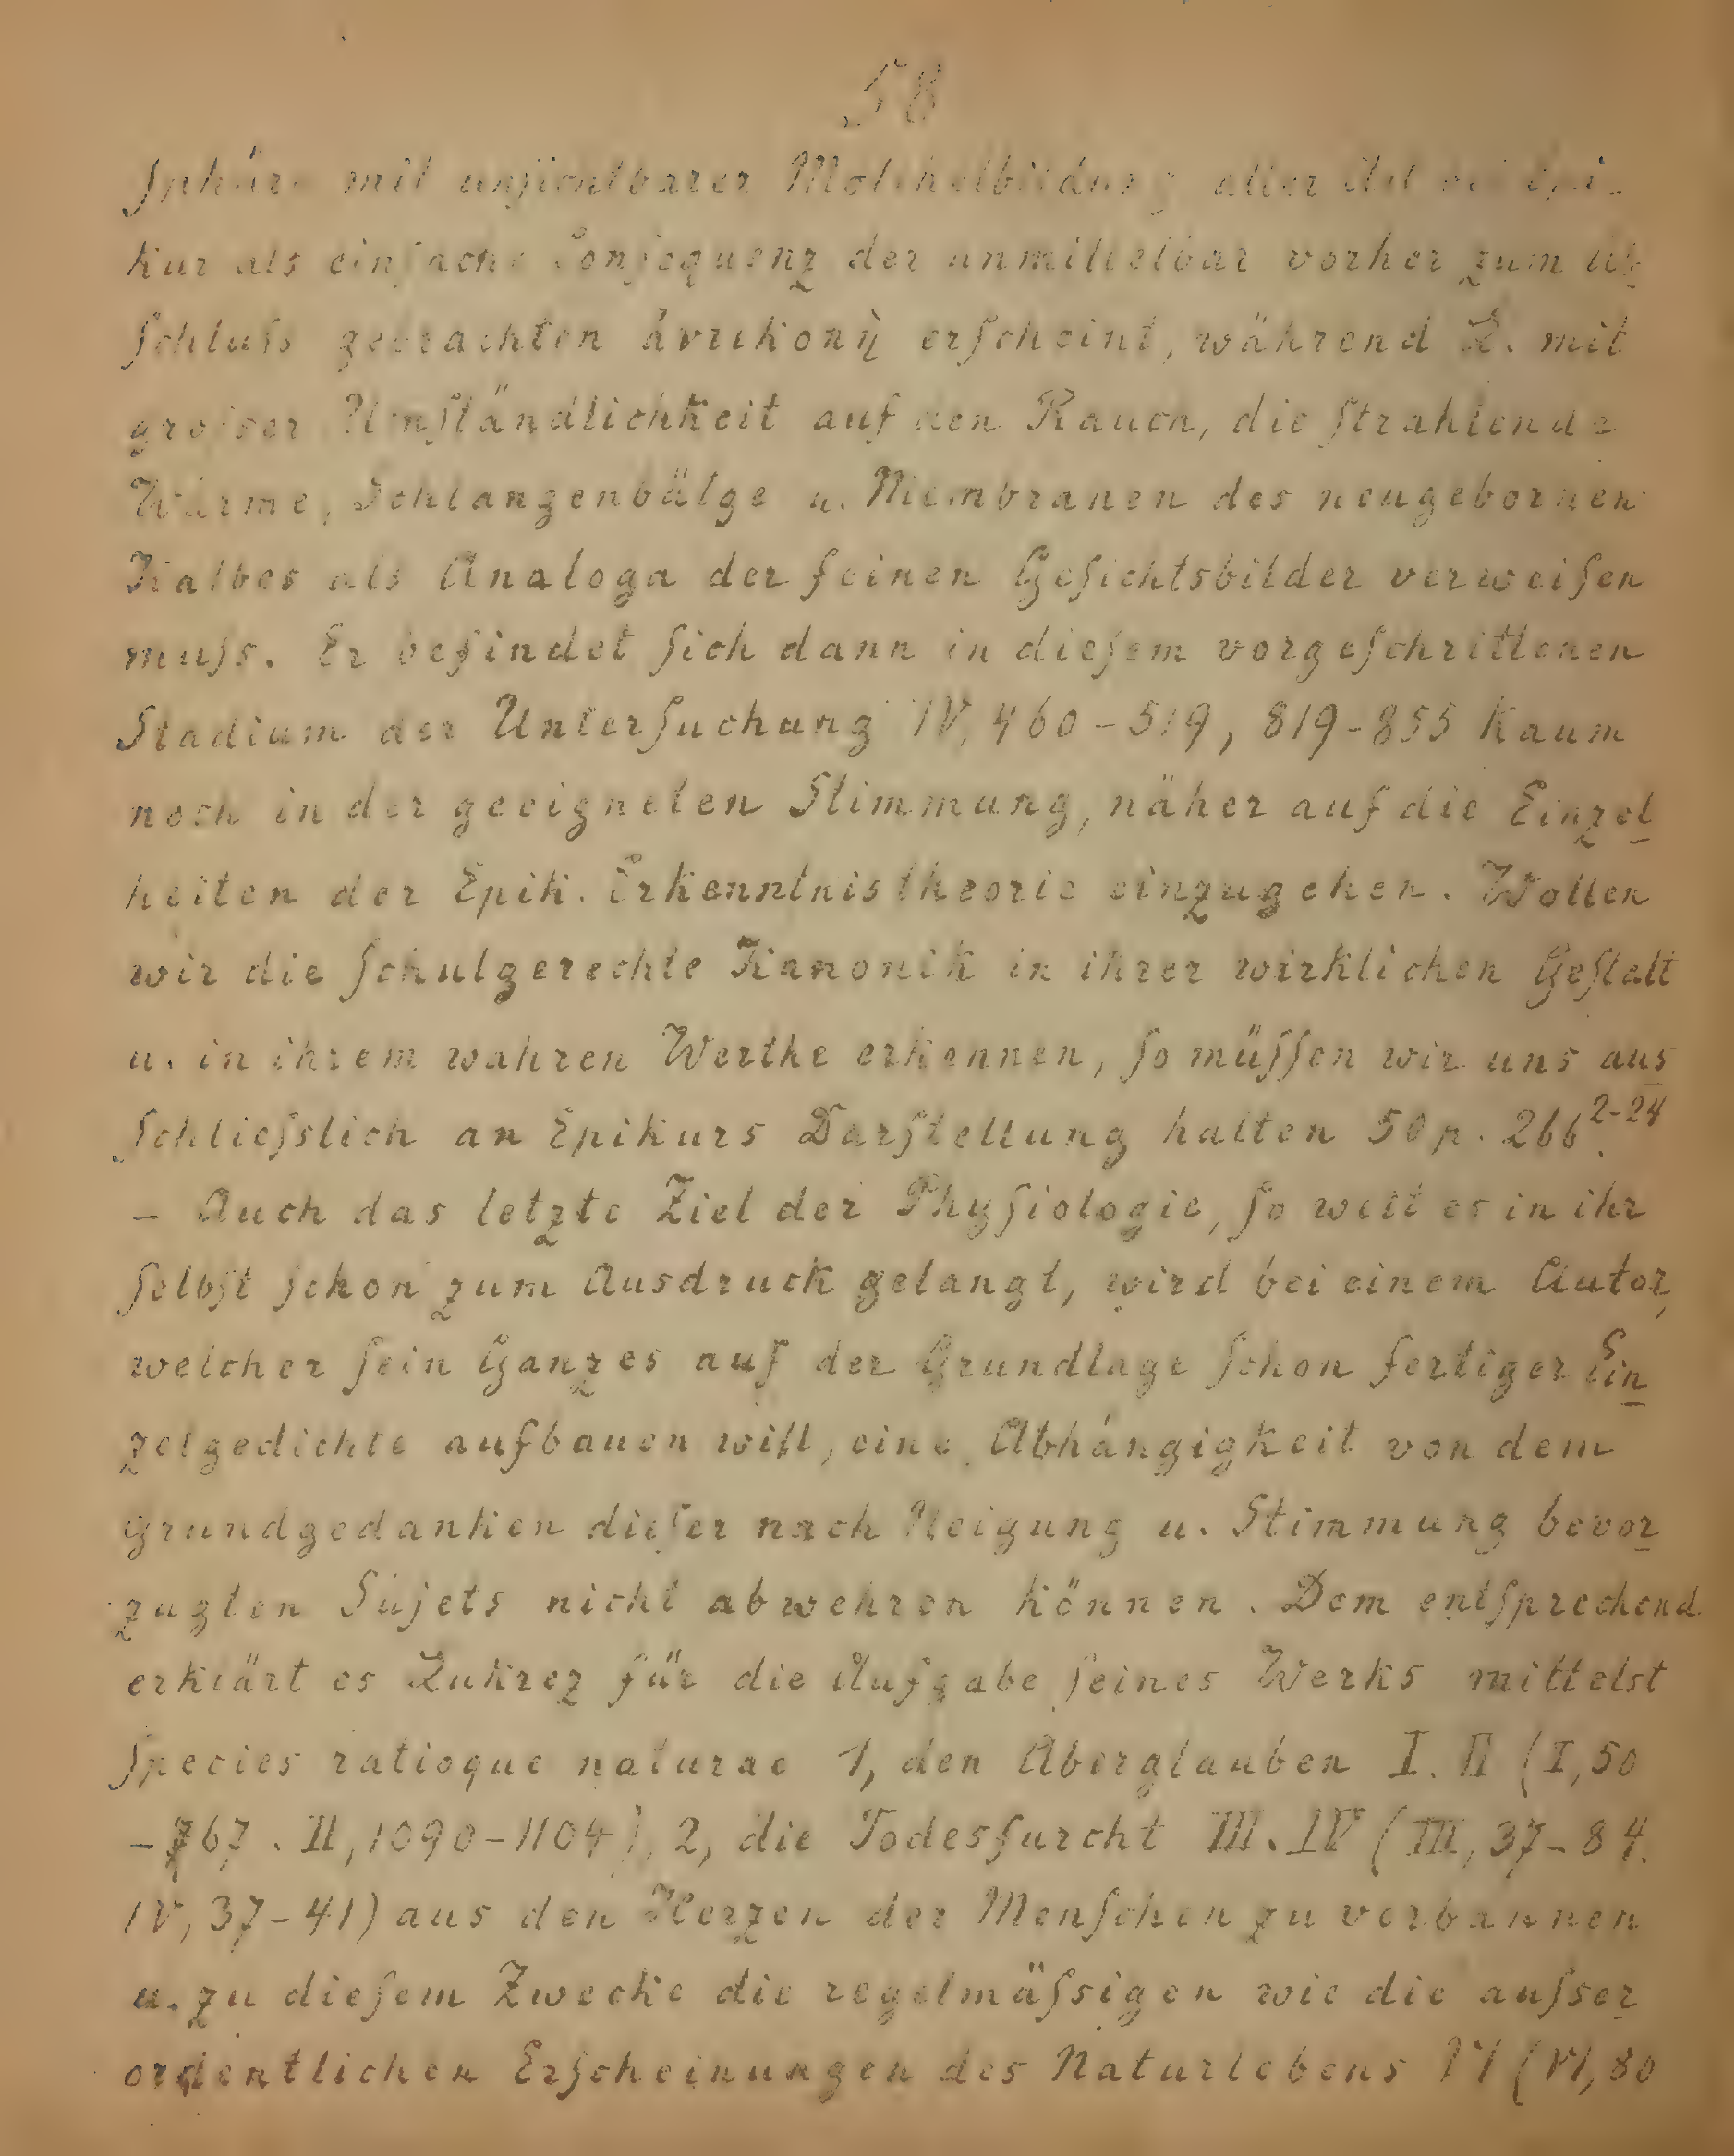 58
Sphäre mit unsichtbarer Molekelbildung aller Art bei Epi-
kur als einfache Consequenz der unmittelbar vorher zum Ab
schluss gebrachten ἀντικοπὴ erscheint, während L. mit
grosser Umständlichkeit auf den Rauch, die strahlende
Wärme, Schlangenbälge u. Membranen des neugebornen
Kalbes als Analoga der feinen Gesichtsbilder verweisen
muss. Er befindet sich dann in diesem vorgeschrittenen
Stadium der Untersuchung IV, 460-519, 819-855 kaum
noch in der geeigneten Stimmung, näher auf die Einzel
heiten der Epik. Erkenntnistheorie einzugehen. Wollen
wir die schulgerechte Kanonik in ihrer wirklichen Gestalt
u. in ihrem wahren Werthe erkennen, so müssen wir uns aus
schliesslich an Epikurs Darstellung halten 50 p. 266 2-24.
- Auch das letzte Ziel der Physiologie, so weit es in ihr
selbst schon zum Ausdruck gelangt, wird bei einem Autor,
welcher sein Ganzes auf der Grundlage schon fertiger Ein
zelgedichte aufbauen will, eine Abhängigkeit von dem
Grundgedanken dieser nach Neigung u. Stimmung bevor
zugten Sujets nicht abwehren können. Dem entsprechend
erklärt es Lukrez für die Aufgabe seines Werks mittelst
species ratioque naturae 1, den Aberglauben I. II (I, 50
- 767. II, 1090-1104), 2, die Todesfurcht III. IV (III, 37-84.
IV, 37-41) aus den Herzen der Menschen zu verbannen
u. zu diesem Zwecke die regelmässigen wie die ausser
ordentlichen Erscheinungen des Naturlebens VI (VI, 80